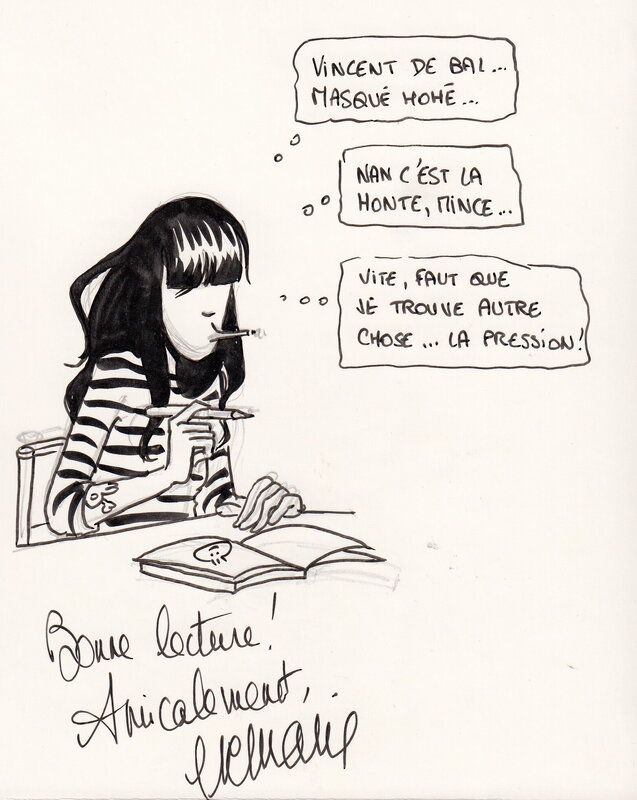 VINCENT DE BAL...
MASQUÉ HOHÉ...
NAN C'EST LA
HONTE, MINCE...
VITE, FAUT QUE
JE TROUVE AUTRE
CHOSE... LA PRESSION!
Bonne lecture!
Amicalement,